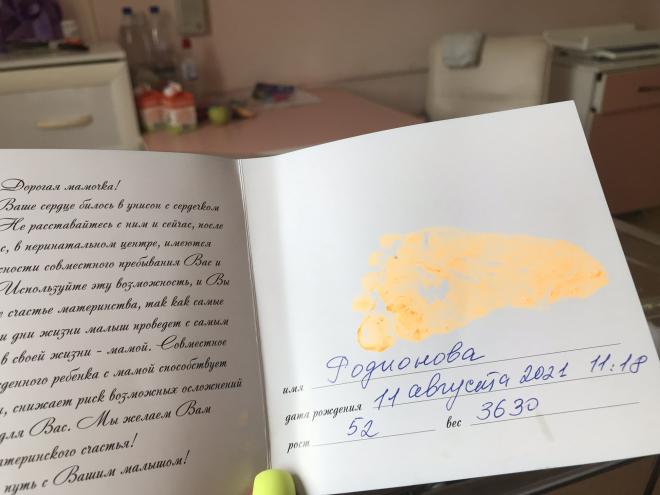 Дорогая мамочка!
Ваше сердце билось в унисон с сердечком
Не расставайтесь с ним и сейчас, после
с, в перинатальном центре, имеются
сности совместного пребывания Вас и
Используйте эту возможность, и Вы
е счастье материнства, так как самые
и дни жизни малыш проведет с самым
в своей жизни - мамой. Совместное
жденного ребенка с мамой способствует
и, снижает риск возможных осложнений
для Вас. Мы желаем Вам
атеринского счастья!
путь с Вашим малышом!
имя Родионова
дата рождения 11 августа 2021 11:18
рост 52 вес 3630